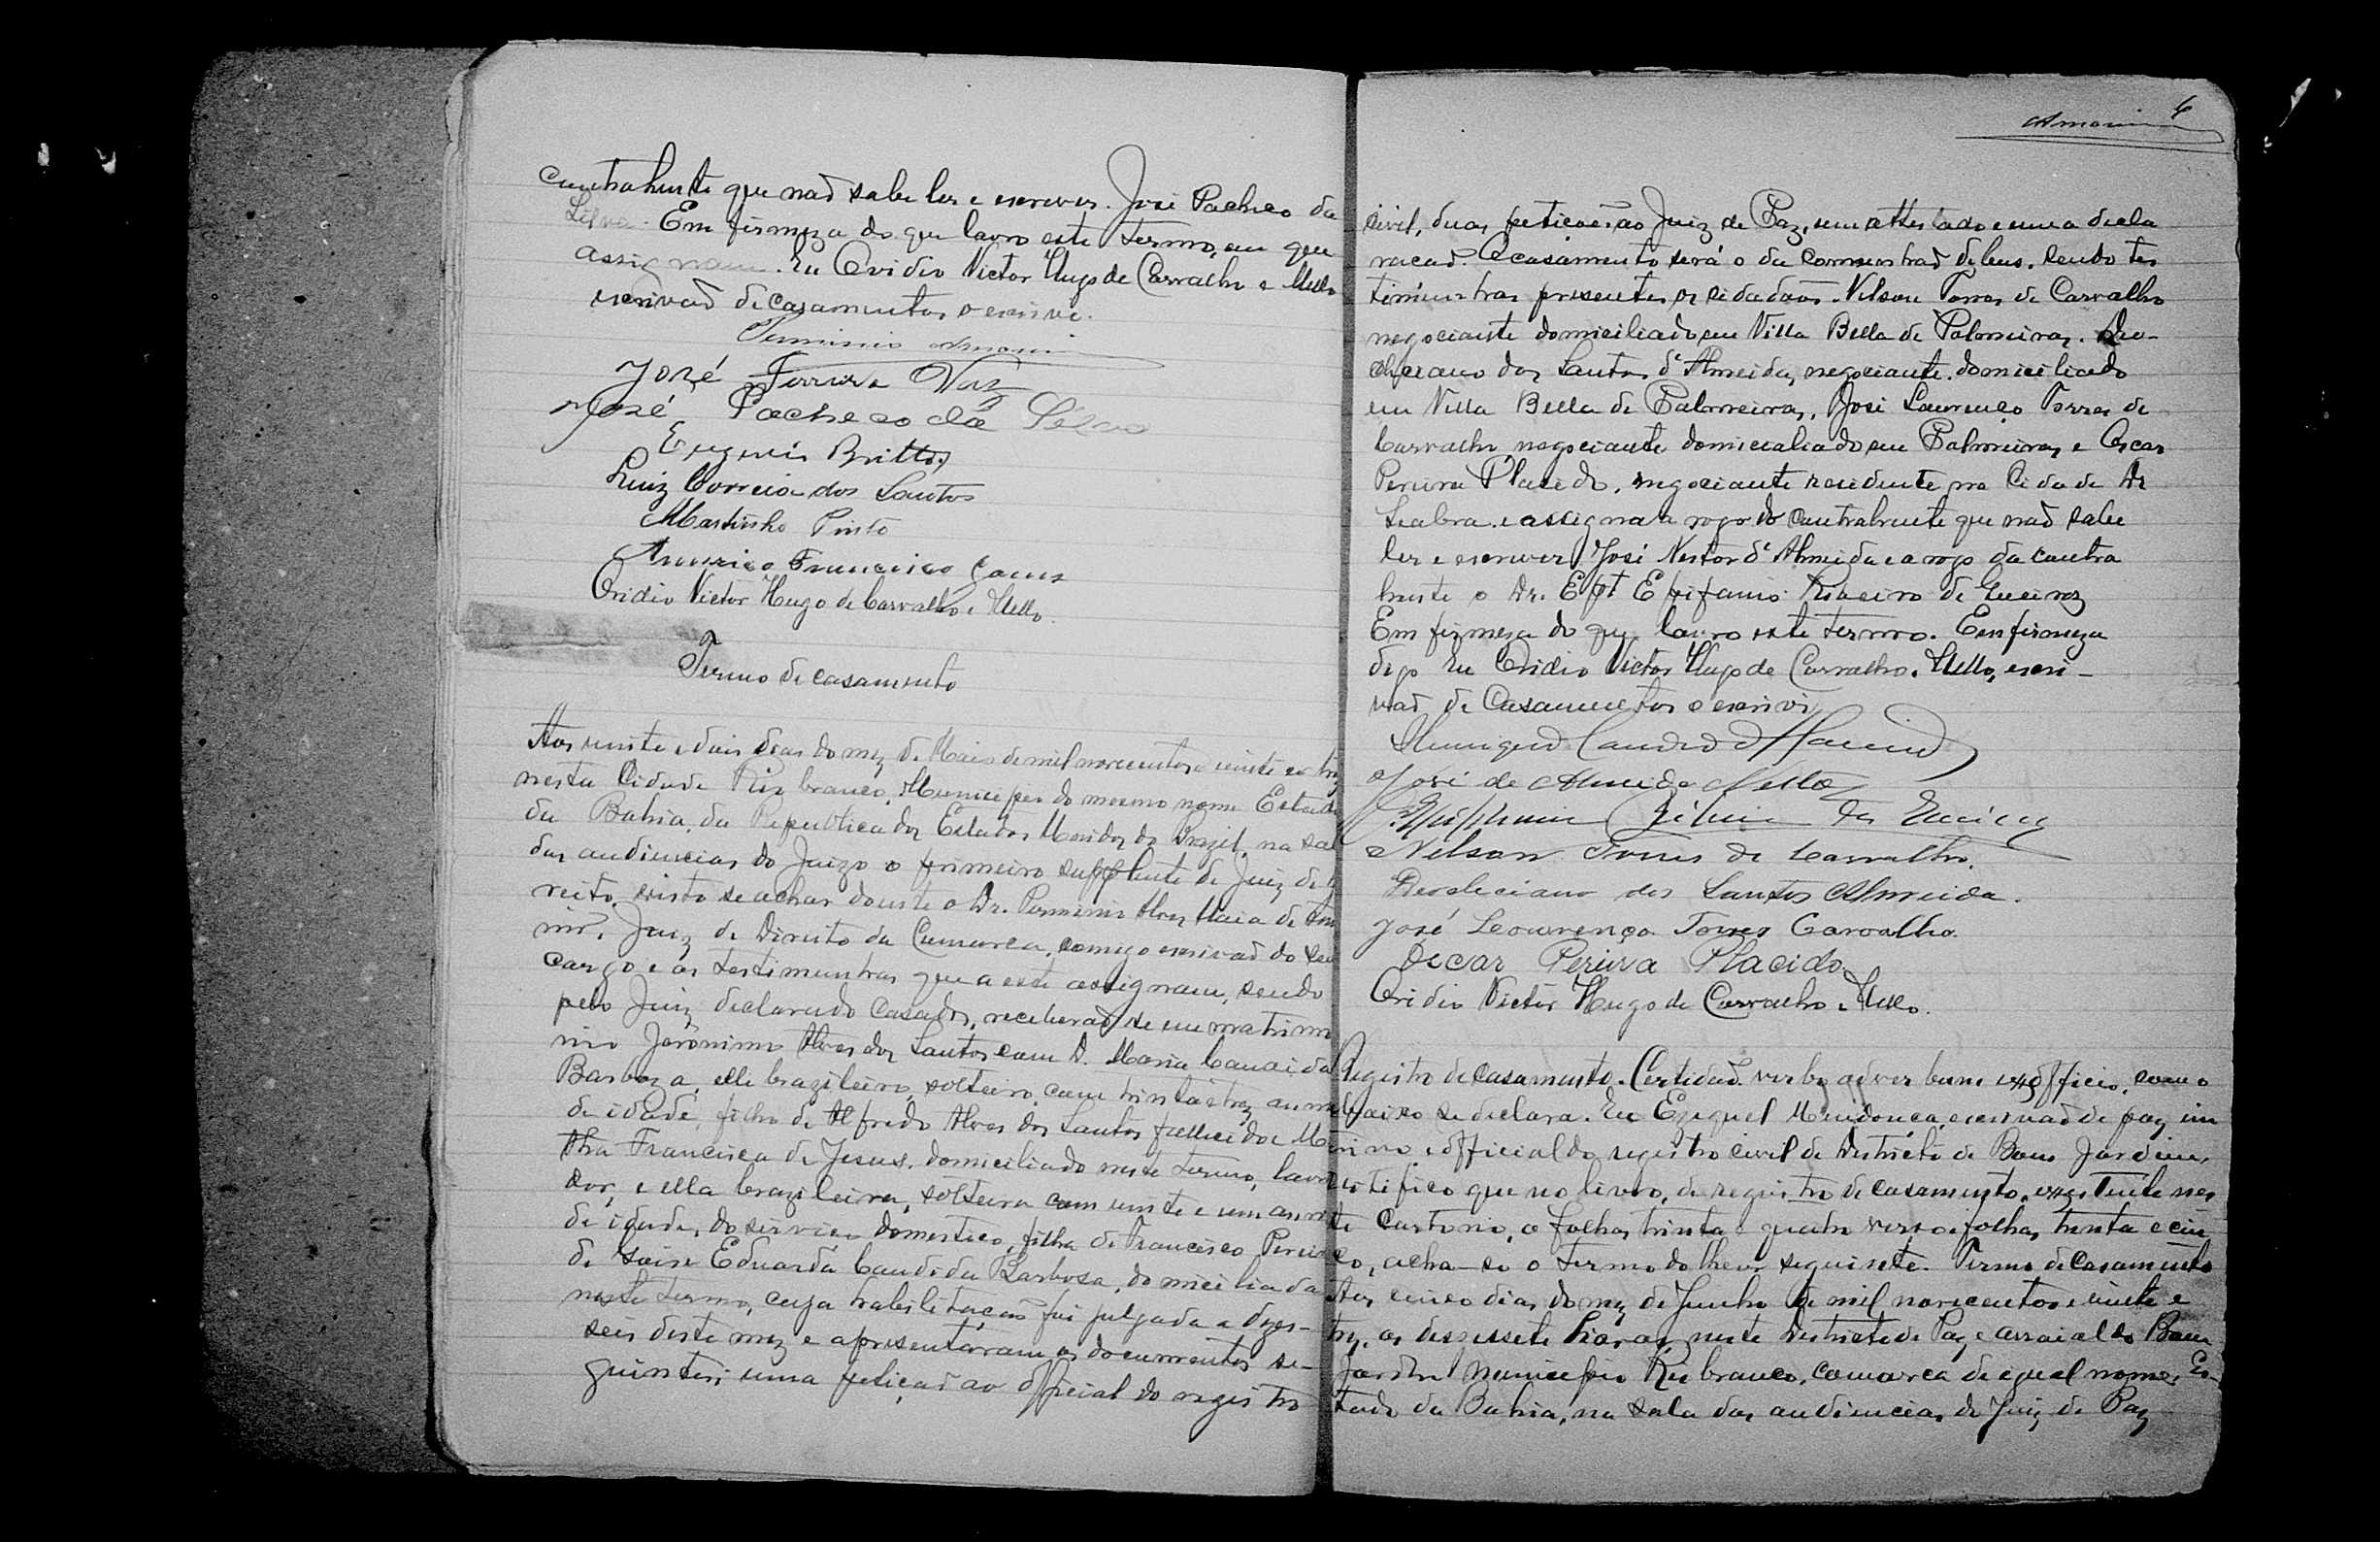 contrahente que naõ sabe ler e escrever. José Pacheco da
Silva. Em firmeza do que lavro este termo, em que
assignam. Eu Ovidio Victor Hugo de Carvalho e Mello
escrivaõ de casamentos o escrivi.
José Ferreira Vaz
José Pacheco da Silva
Luiz Correia dos Santos
Martinho Pinto
Americo Francisco
Ovidio Victor Hugo de Carvalho e Mello.
Termo de casamento
Aos vinte e dois dias do mez de Maio de mil novecentos e vinte e trez
nesta Cidade Rio branco, Municipio do mesmo nome Estado
da Bahia, da Republica dos Estados Unidos do Brazil, na sal
das audiencias do Juizo o primeiro supplente de Juiz de
reito, visto se achar doente o Dr. Perminio Alves Maia de Amo
rim, Juiz de Direito da Comarca, comigo escrivaõ do seu
cargo e as testimunhas que a este assignam, sendo
pelo Juiz declarado casados, receberaõ se em matrimo
nio Jeronimo Alves dos Santos com D. Maria Candida
Barboza, elle brazileiro, solteiro, com trinta e trez anno
de idade, filho de Alfredo Alves dos Santos fallecido e Ma
tha Francisca de Jesus, domiciliado neste termo, lavra
dor, e ella brazileira, solteira com vinte e um anno
de idade, do serviço domestico, filha de Francisco Perei
de Eduarda Candida Barbosa, domiciliada
neste termo, cuja habilitaçaõ foi julgada a dezes-
seis deste mez e apresentaram os documentos se-
guintes; uma petiçaõ ao official do registro
6
Amorim
civil, duas petiçoẽs ao Juiz de Paz, um attestado e uma decla
raçaõ. O casamento será o da communhaõ de bens. Sendo tes
timunhas presentes, os cidadaõs. Nilson Torres de Carvalho
negociante domiciliado em Villa Bella de Palmeiras. Deo-
cleciano dos Santos d'Almeida, negociante, domiciliado
em Villa Bella de Palmeiras, José Lourenço Torres de
Carvalho, negociante domicialiado em Palmeiras e Oscar
Pereira Placido, negociante residente na Cidade Dr
Seabra. e assigna a rogo do contrahente que naõ sabe
ler e escrever José Nestor d'Almeida e a rogo da contra
hente o Dr. Ept Epifanio Ribeiro de Queiroz
Em firmesa do que lavro este termo. Em firmeza
digo Eu Ovidio Victor Hugo de Carvalho e Mello, escri-
vaõ de Casamentos o escrivi
José de Almeida
Nelson Torres de Carvalho.
Deocleciano dos Santos Almeida.
José Lourenço Torres Carvalho.
Oscar Pereira Placido
Ovidio Victor Hugo de Carvalho e Mello.
Registro de casamento. Certidaõ verbo adverbum ex officio, como
abaixo se declara. Eu Ezequel Mendonça, escrivaõ de paz in
terino e official do registro civil de Districto de Bom Jardim,
certifico que no livro, de registro de casamento, existente nes
te Cartorio, a folhas trinta e quatro verso e folhas trinta e cin
co, acha-se o termo do theor seguinte. Termo de Casamento
Aos cinco dias do mez de Junho de mil novecentos e vinte e
trez, as dessessete horas, neste Districto de Paz e arraial do Bom
Jardim Municipio Rio branco, comarca de egual nome, Es-
tado da Bahia, na sala das audiencias de Juiz de Paz